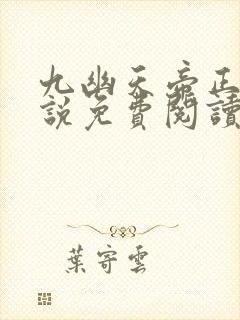 九幽天帝正
說免費閱讀
葉寄雲